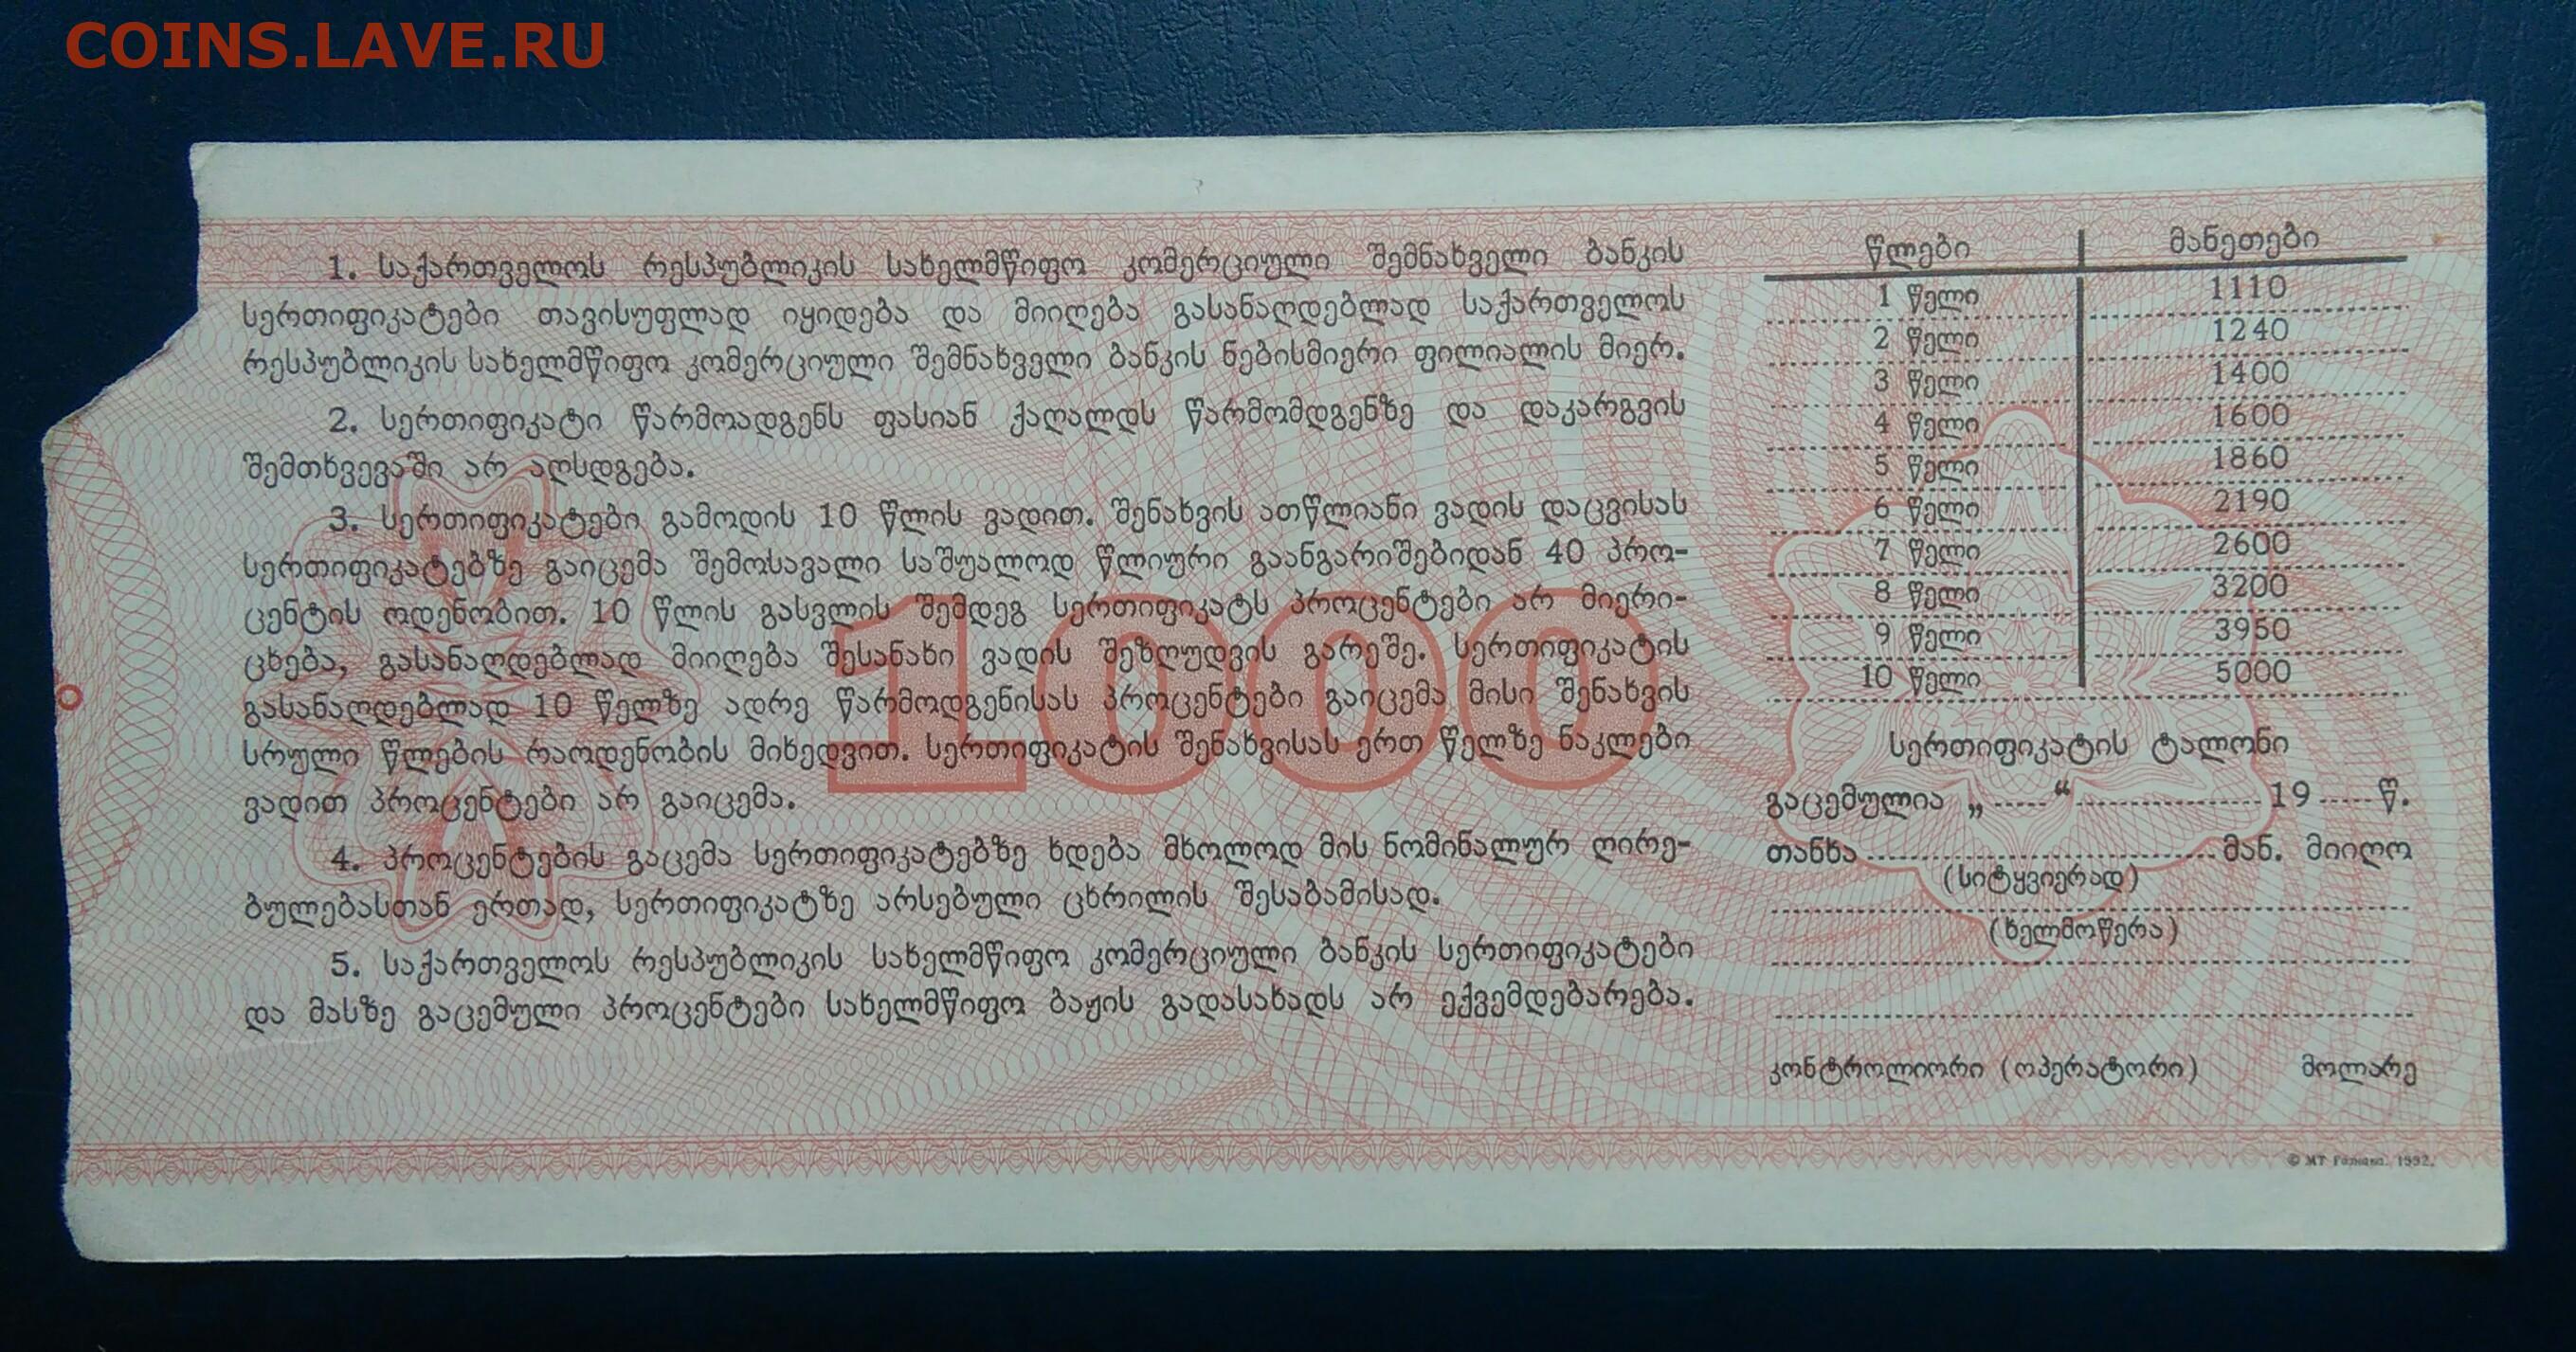 COINS.LAVE.RU
1. საქართველოს რესპუბლიკის სახელმწიფო კომერციული შემნახველი ბანკის
სერთიფიკატები თავისუფლად იყიდება და მიიღება გასანაღდებლად საქართველოს
რესპუბლიკის სახელმწიფო კომერციული შემნახველი ბანკის ნებისმიერი ფილიალის მიერ.
2. სერთიფიკატი წარმოადგენს ფასიან ქაღალდს წარმომდგენზე და დაკარგვის
შემთხვევაში არ აღსდგება.
3. სერთიფიკატები გამოდის 10 წლის ვადით. შენახვის ათწლიანი ვადის დაცვისას
სერთიფიკატებზე გაიცემა შემოსავალი საშუალოდ წლიური გაანგარიშებიდან 40 პრო-
ცენტის ოდენობით. 10 წლის გასვლის შემდეგ სერთიფიკატს პროცენტები არ მიერი-
ცხება, გასანაღდებლად მიიღება შესანახი ვადის შეზღუდვის გარეშე. სერთიფიკატის
გასანაღდებლად 10 წელზე ადრე წარმოდგენისას პროცენტები გაიცემა მისი შენახვის
სრული წლების რაოდენობის მიხედვით. სერთიფიკატის შენახვისას ერთ წელზე ნაკლები
ვადით პროცენტები არ გაიცემა.
4. პროცენტების გაცემა სერთიფიკატებზე ხდება მხოლოდ მის ნომინალურ ღირე-
ბულებასთან ერთად, სერთიფიკატზე არსებული ცხრილის შესაბამისად.
5. საქართველოს რესპუბლიკის სახელმწიფო კომერციული ბანკის სერთიფიკატები
და მასზე გაცემული პროცენტები სახელმწიფო ბაჟის გადასახადს არ ექვემდებარება.
1000
წლები მანეთები
1 წელი 1110
2 წელი 1240
3 წელი 1400
4 წელი 1600
5 წელი 1860
6 წელი 2190
7 წელი 2600
8 წელი 3200
9 წელი 3950
10 წელი 5000
სერთიფიკატის ტალონი
გაცემულია „......“.................... 19 ...... წ.
თანხა.................................. მან. მიიღო
(სიტყვიერად)
(ხელმოწერა)
კონტროლიორი (ოპერატორი) მოლარე
© МТ Гознака. 1992.